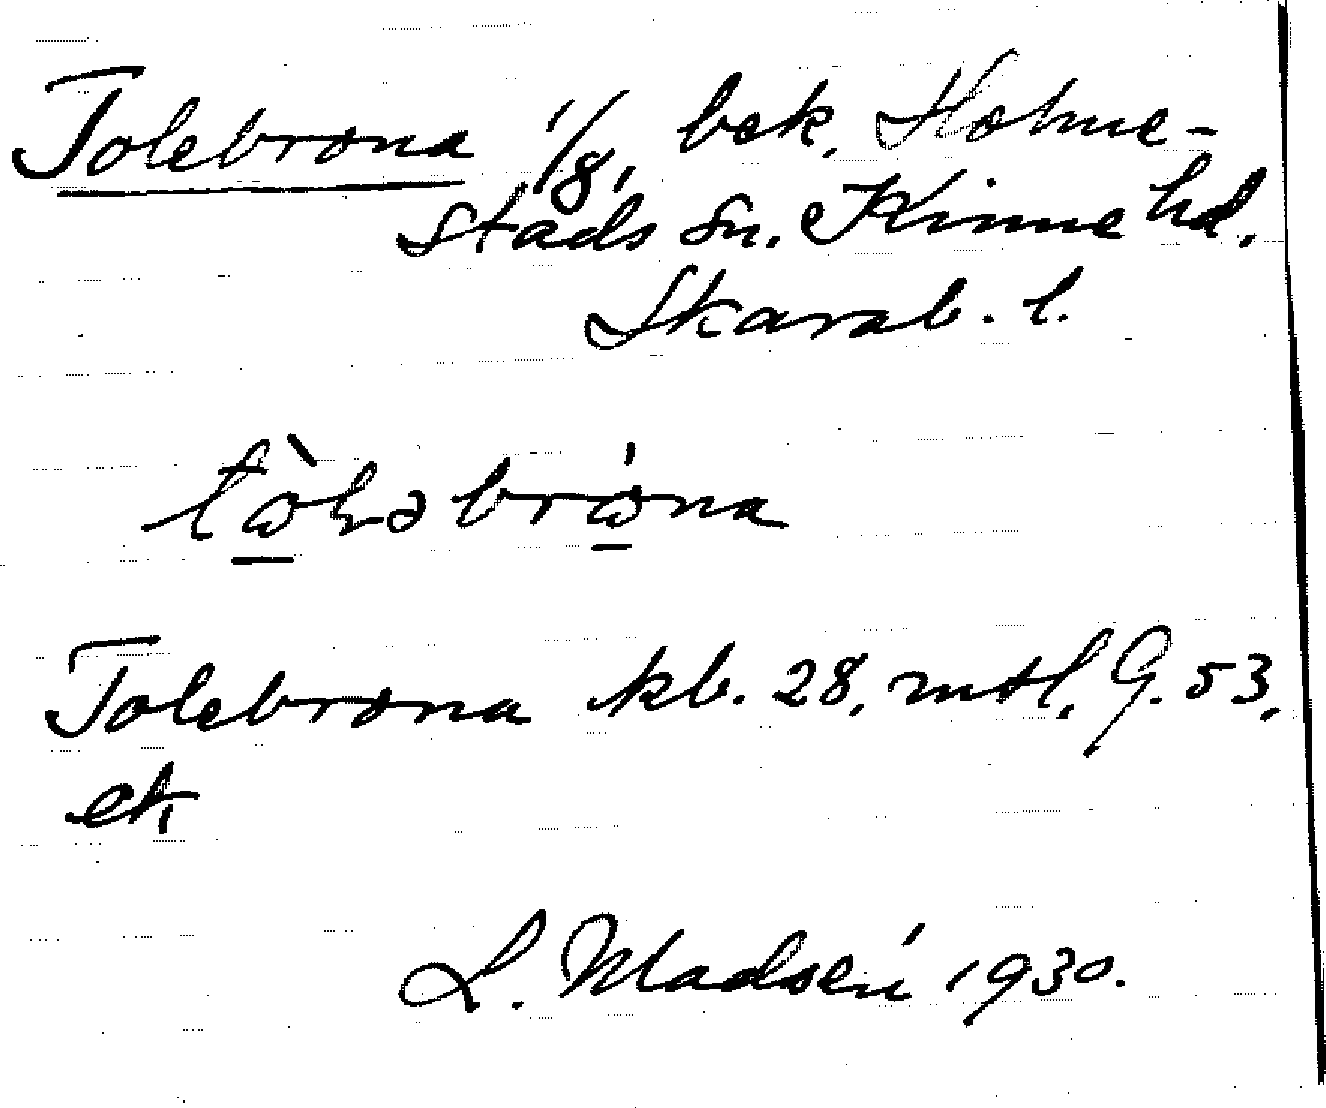 Tolebrona 1/8, bek. Holme-
stads sn. Kinne hd.
Skarab. l.
Tolebrona kb. 28, mtl. G. 53,
ek
L. Madsén 1930.